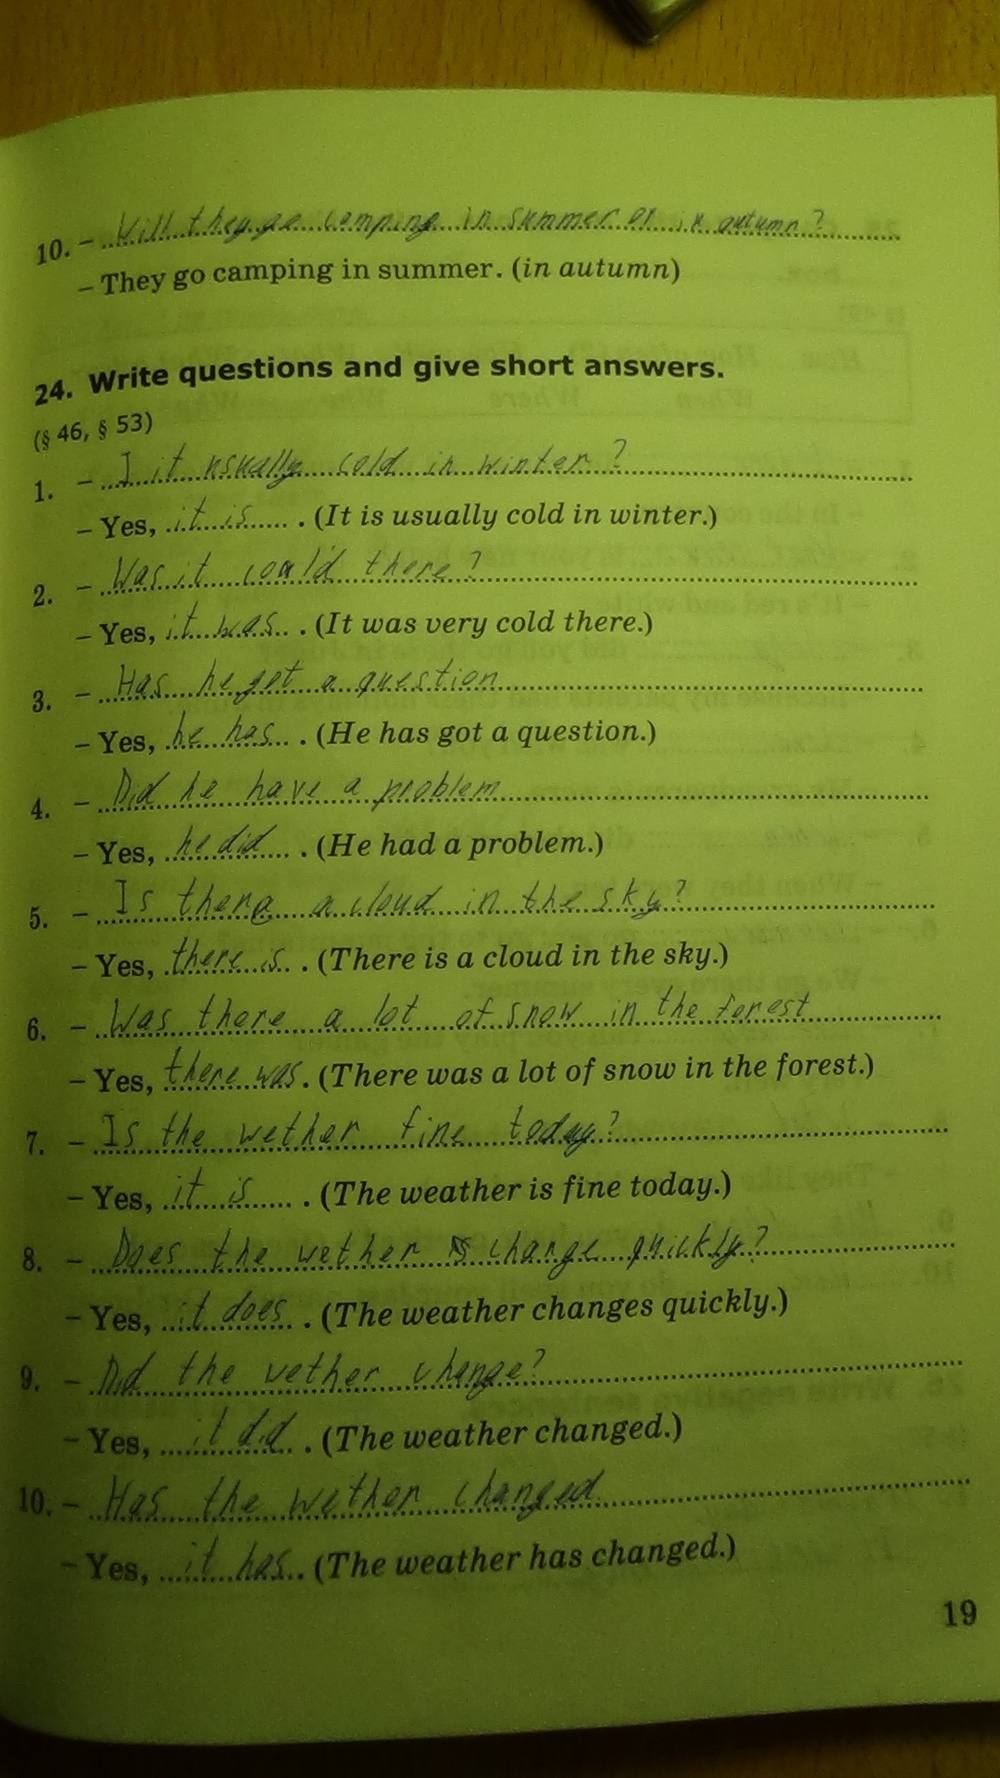 10. – Will they go camping in summer or in autumn?
– They go camping in summer. (in autumn)
24. Write questions and give short answers.
(§ 46, § 53)
1. – I it usually cold in winter?
– Yes, it is. (It is usually cold in winter.)
2. – Was it could there?
– Yes, it was. (It was very cold there.)
3. – Has he got a question
– Yes, he has. (He has got a question.)
4. – Did he have a problem
– Yes, he did. (He had a problem.)
5. – Is there a cloud in the sky?
– Yes, there is. (There is a cloud in the sky.)
6. – Was there a lot of snow in the forest
– Yes, there was. (There was a lot of snow in the forest.)
7. – Is the wether fine today?
– Yes, it is. (The weather is fine today.)
8. – Does the wether change quickly?
– Yes, it does. (The weather changes quickly.)
9. – Did the wether change?
– Yes, it did. (The weather changed.)
10. – Has the wether changed
– Yes, it has. (The weather has changed.)
19